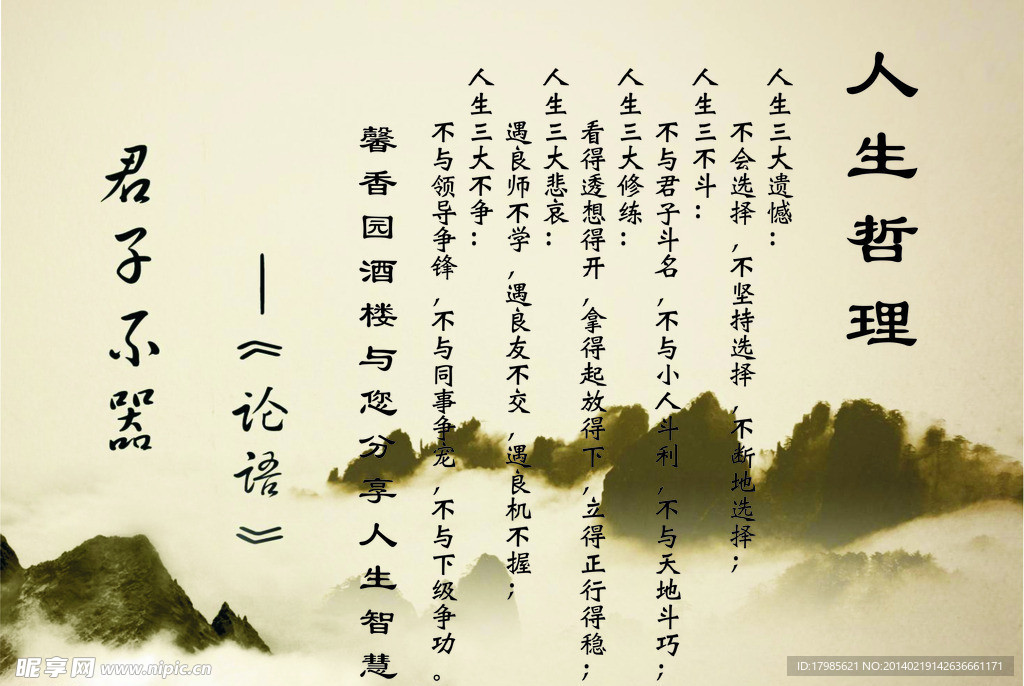 人生哲理
人生三大遗憾：
不会选择，不坚持选择，不断地选择；
人生三不斗：
不与君子斗名，不与小人斗利，不与天地斗巧；
人生三大修练：
看得透想得开，拿得起放得下，立得正行得稳；
人生三大悲哀：
遇良师不学，遇良友不交，遇良机不握；
人生三大不争：
不与领导争锋，不与同事争宠，不与下级争功。
馨香园酒楼与您分享人生智慧
—《论语》
君子不器
昵享网 www.nipic.cn
ID:17985621 NO:20140219142636661171